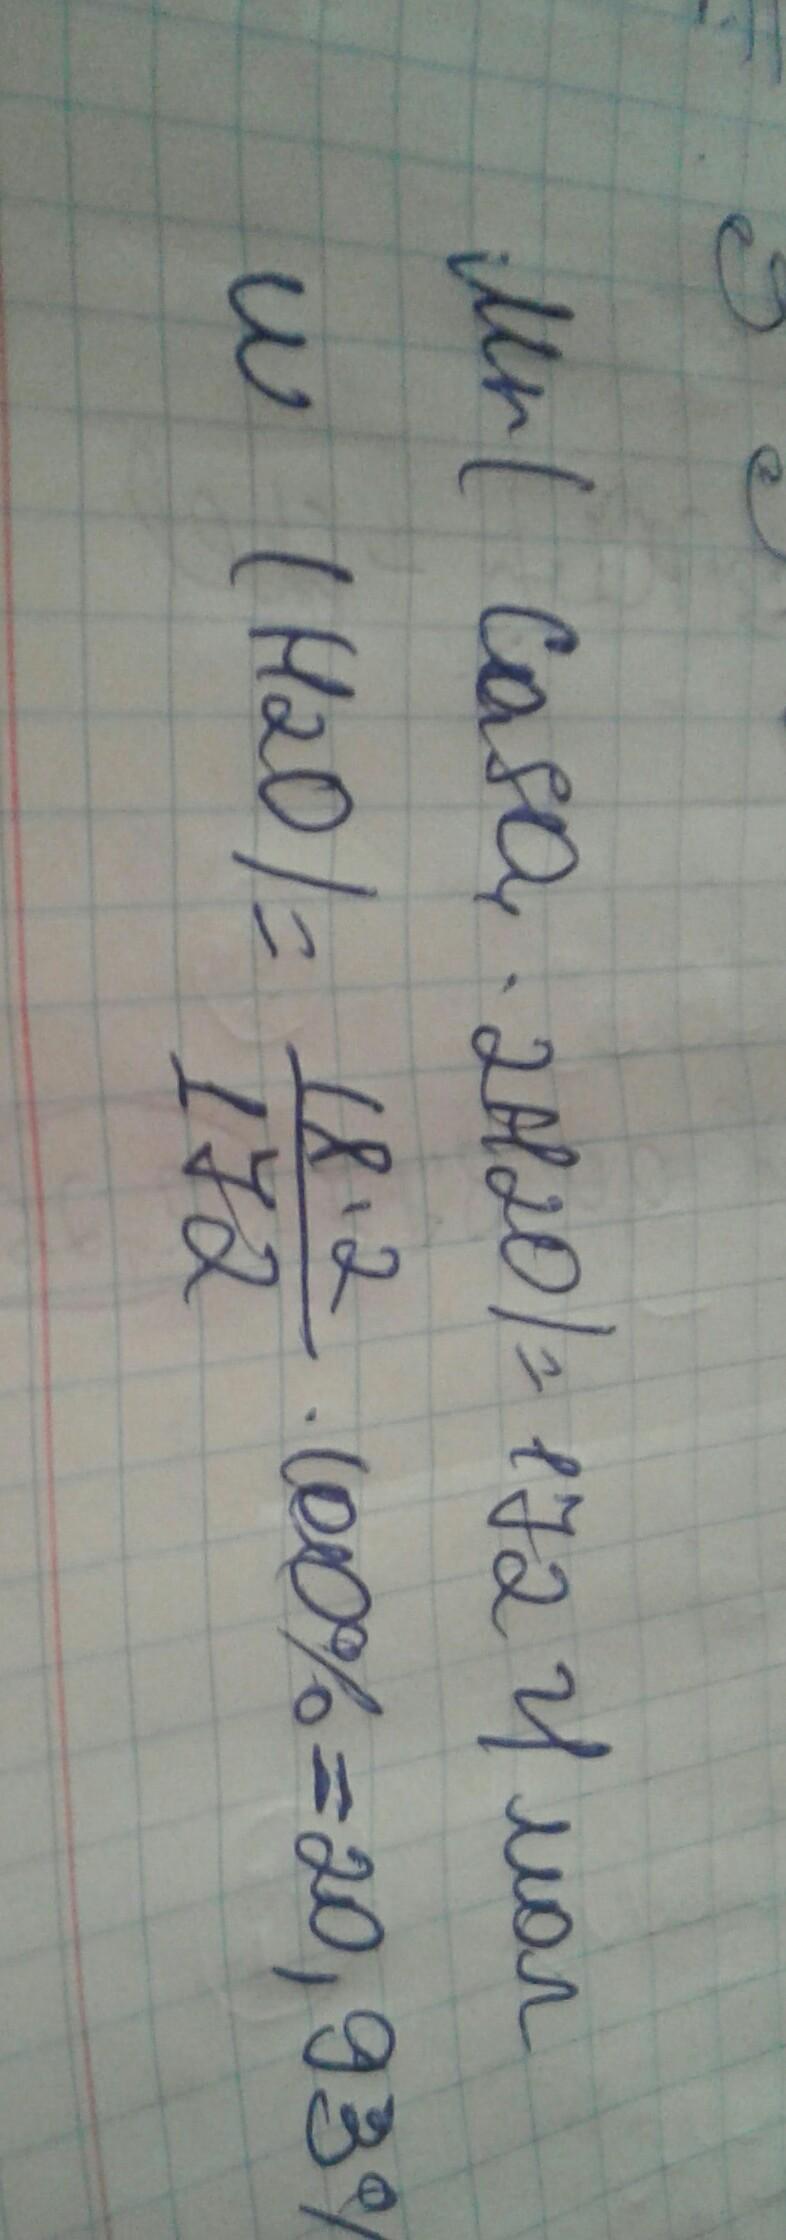 Mr( CaSO4 · 2H2O)= 172 г/мол
w (H2O)= 18·2/172 · 100% = 20,93%